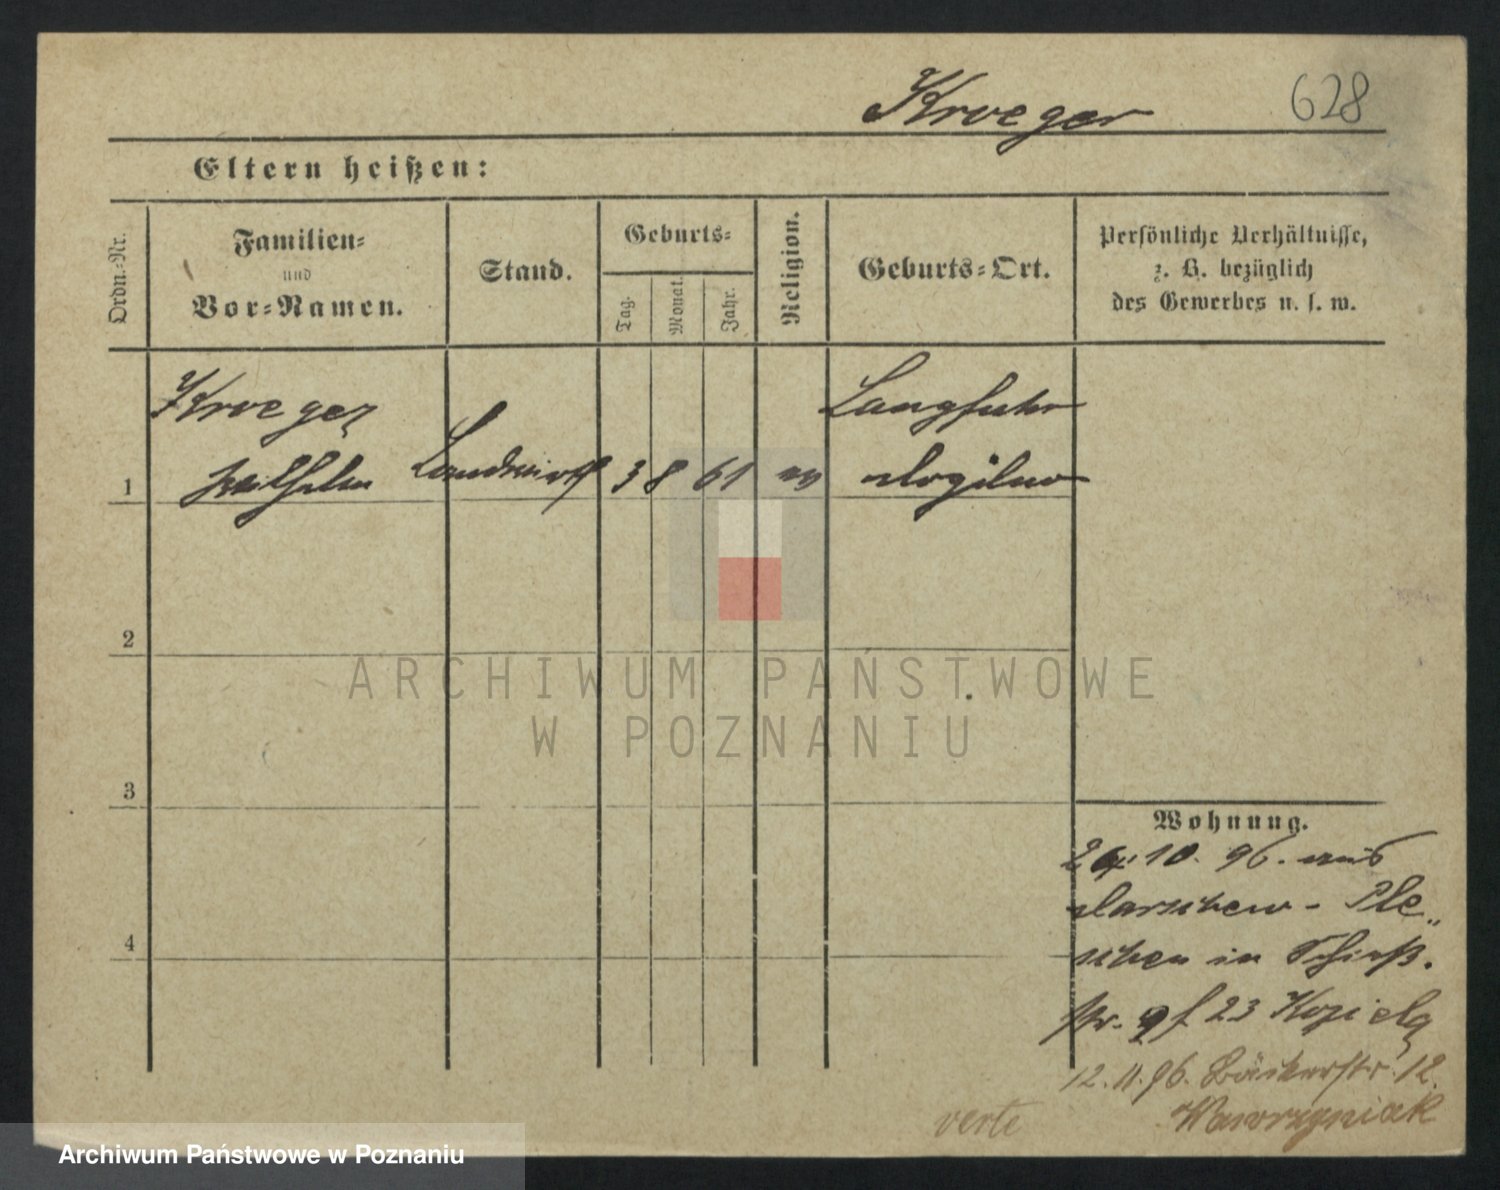 Kroeger 628
Eltern heißen:
Ordn.-Nr.
Familien-
und
Vor-Namen.
Stand.
Geburts-
Tag.
Monat.
Jahr.
Religion.
Geburts-Ort.
Persönliche Verhältnisse,
z. B. bezüglich
des Gewerbes u. s. w.
Kroeger
Langfuhr
1 Wilhelm Landwirth 3 8 61 Mogilno
2
ARCHIWUM PAŃSTWOWE
W POZNANIU
3
Wohnung.
10. 96. aus
- Ple„
schen in Schieß.
str. 23
4
12. 11. 96. Bäckerstr. 12.
Wawrzyniak
verte
Archiwum Państwowe w Poznaniu